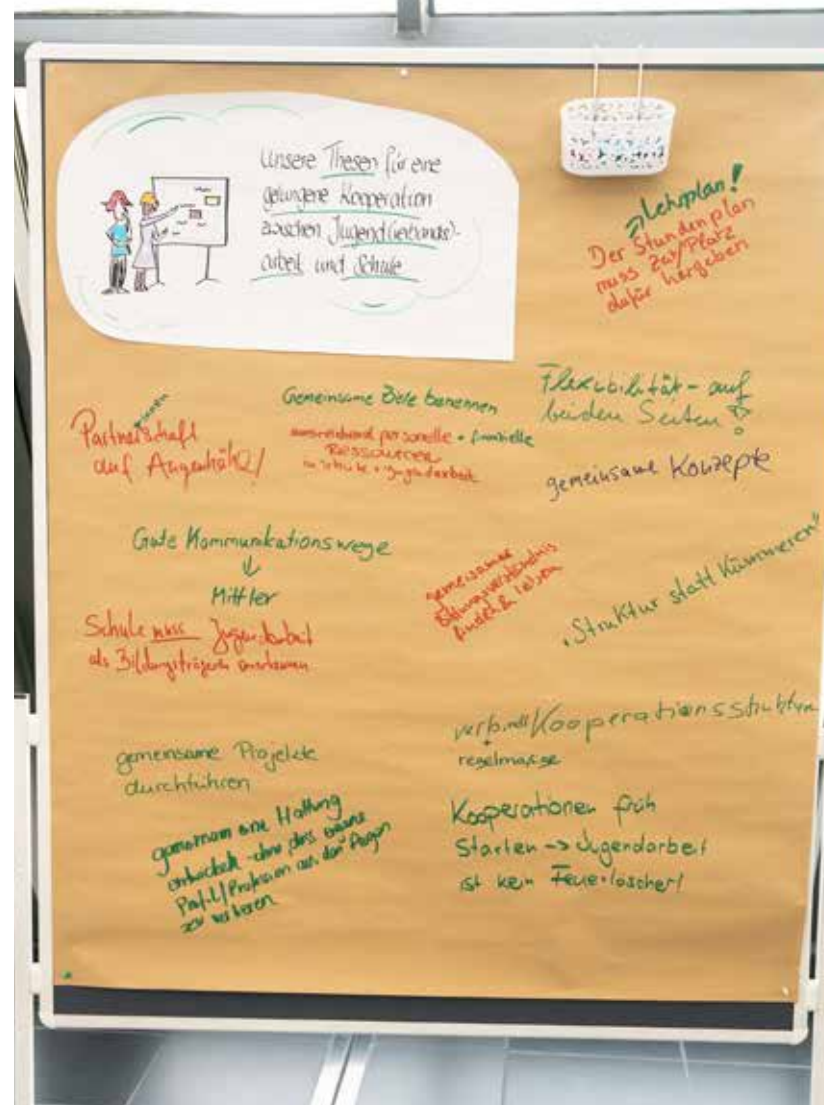 Unsere Thesen für eine
gelungene Kooperation
zwischen Jugend(verbands)-
arbeit und Schule
Lehrplan!
Der Stundenplan
muss Zeit/Platz
dafür hergeben
Partnerschaft
auf Augenhöhe!
Gemeinsame Ziele benennen
ausreichend personelle + finanzielle
Ressourcen
in Schule + Jugendarbeit
Flexibilität - auf
beiden Seiten!
gemeinsame Konzepte
Gute Kommunikationswege
↓
Mittler
Schule muss Jugendarbeit
als Bildungsträgerin anerkennen
gemeinsames
Bildungsverständnis
finden & leben
"Struktur statt Kümmeren"
verbindl. Kooperationsstrukturen
+
regelmässige
gemeinsame Projekte
durchführen
gemeinsam eine Haltung
entwickeln - ohne dass eigene
Profil/Profession aus den Augen
zu verlieren
Kooperationen früh
Starten -> Jugendarbeit
ist kein Feuerlöscher!